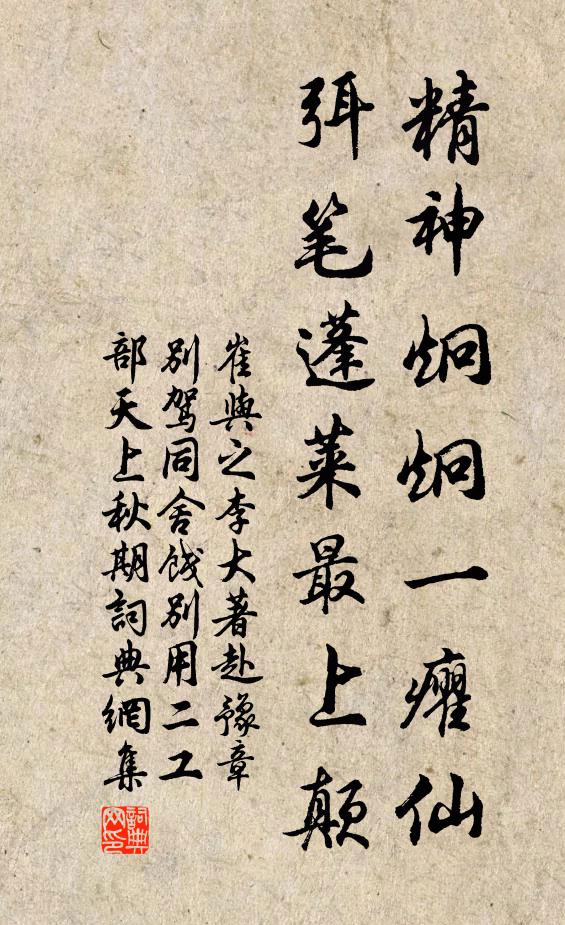 精神炯炯一癯仙
弭笔蓬莱最上颠
崔與之李大著赴豫章
别駕同舍餞别用二工
部天上秋期詞典網集
詞典
网印